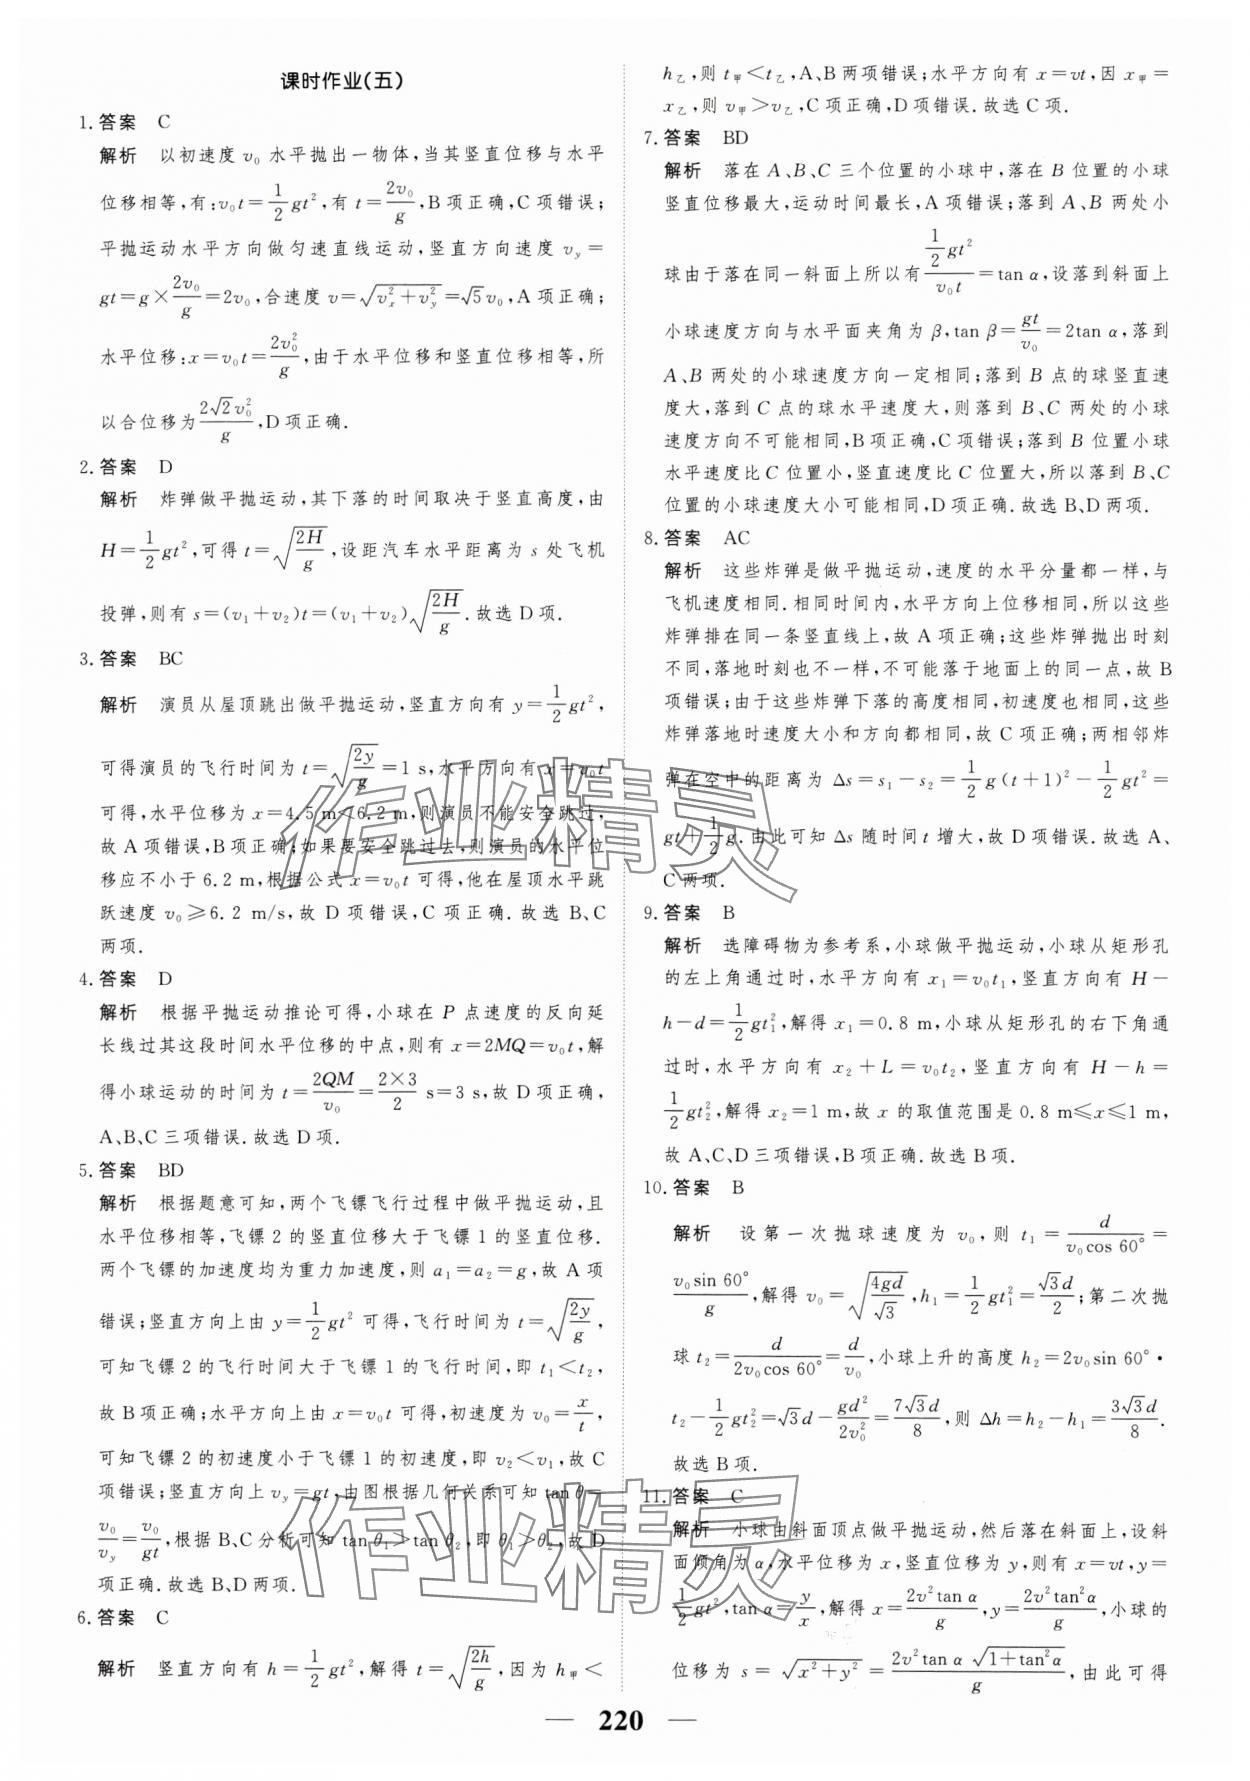 课时作业(五)
1. 答案 C
解析 以初速度 v₀ 水平抛出一物体,当其竖直位移与水平
位移相等,有:v₀t=\frac{1}{2}gt²,有 t=\frac{2v₀}{g},B项正确,C项错误;
平抛运动水平方向做匀速直线运动,竖直方向速度 v_y=
gt=g×\frac{2v₀}{g}=2v₀,合速度 v=\sqrt{v_x²+v_y²}=√5v₀,A项正确;
水平位移:x=v₀t=\frac{2v₀²}{g},由于水平位移和竖直位移相等,所
以合位移为\frac{2√2v₀²}{g},D项正确.
2. 答案 D
解析 炸弹做平抛运动,其下落的时间取决于竖直高度,由
H=\frac{1}{2}gt²,可得 t=\sqrt{\frac{2H}{g}},设距汽车水平距离为 s 处飞机
投弹,则有 s=(v₁+v₂)t=(v₁+v₂)\sqrt{\frac{2H}{g}}.故选D项.
3. 答案 BC
解析 演员从屋顶跳出做平抛运动,竖直方向有 y=\frac{1}{2}gt²,
可得演员的飞行时间为 t=\sqrt{\frac{2y}{g}}=1 s,水平方向有 x=v₀t
可得,水平位移为 x=4.5 m<6.2 m,则演员不能安全跳过,
故A项错误,B项正确;如果要安全跳过去,则演员的水平位
移应不小于 6.2 m,根据公式 x=v₀t 可得,他在屋顶水平跳
跃速度 v₀≥6.2 m/s,故D项错误,C项正确.故选B、C
两项.
4. 答案 D
解析 根据平抛运动推论可得,小球在 P 点速度的反向延
长线过其这段时间水平位移的中点,则有 x=2MQ=v₀t,解
得小球运动的时间为 t=\frac{2QM}{v₀}=\frac{2×3}{2} s=3 s,故D项正确,
A、B、C三项错误.故选D项.
5. 答案 BD
解析 根据题意可知,两个飞镖飞行过程中做平抛运动,且
水平位移相等,飞镖2的竖直位移大于飞镖1的竖直位移.
两个飞镖的加速度均为重力加速度,则 a₁=a₂=g,故A项
错误;竖直方向上由 y=\frac{1}{2}gt² 可得,飞行时间为 t=\sqrt{\frac{2y}{g}},
可知飞镖2的飞行时间大于飞镖1的飞行时间,即 t₁<t₂,
故B项正确;水平方向上由 x=v₀t 可得,初速度为 v₀=\frac{x}{t},
可知飞镖2的初速度小于飞镖1的初速度,即 v₂<v₁,故C
项错误;竖直方向上 v_y=gt,由图根据几何关系可知 tan θ=
\frac{v₀}{v_y}=\frac{v₀}{gt},根据B、C分析可知 tan θ₁>tan θ₂,即 θ₁>θ₂,故D
项正确.故选B、D两项.
6. 答案 C
解析 竖直方向有 h=\frac{1}{2}gt²,解得 t=\sqrt{\frac{2h}{g}},因为 h甲<
h乙,则 t甲<t乙,A、B两项错误;水平方向有 x=vt,因 x甲=
x乙,则 v甲>v乙,C项正确,D项错误.故选C项.
7. 答案 BD
解析 落在 A、B、C 三个位置的小球中,落在 B 位置的小球
竖直位移最大,运动时间最长,A项错误;落到 A、B 两处小
球由于落在同一斜面上所以有\frac{\frac{1}{2}gt²}{v₀t}=tan α,设落到斜面上
小球速度方向与水平面夹角为 β,tan β=\frac{gt}{v₀}=2tan α,落到
A、B 两处的小球速度方向一定相同;落到 B 点的球竖直速
度大,落到 C 点的球水平速度大,则落到 B、C 两处的小球
速度方向不可能相同,B项正确,C项错误;落到 B 位置小球
水平速度比 C 位置小,竖直速度比 C 位置大,所以落到 B、C
位置的小球速度大小可能相同,D项正确.故选B、D两项.
8. 答案 AC
解析 这些炸弹是做平抛运动,速度的水平分量都一样,与
飞机速度相同.相同时间内,水平方向上位移相同,所以这些
炸弹排在同一条竖直线上,故A项正确;这些炸弹抛出时刻
不同,落地时刻也不一样,不可能落于地面上的同一点,故B
项错误;由于这些炸弹下落的高度相同,初速度也相同,这些
炸弹落地时速度大小和方向都相同,故C项正确;两相邻炸
弹在空中的距离为 Δs=s₁-s₂=\frac{1}{2}g(t+1)²-\frac{1}{2}gt²=
gt+\frac{1}{2}g.由此可知 Δs 随时间 t 增大,故D项错误.故选A、
C两项.
9. 答案 B
解析 选障碍物为参考系,小球做平抛运动,小球从矩形孔
的左上角通过时,水平方向有 x₁=v₀t₁,竖直方向有 H-
h-d=\frac{1}{2}gt₁²,解得 x₁=0.8 m,小球从矩形孔的右下角通
过时,水平方向有 x₂+L=v₀t₂,竖直方向有 H-h=
\frac{1}{2}gt₂²,解得 x₂=1 m,故 x 的取值范围是 0.8 m≤x≤1 m,
故A、C、D三项错误,B项正确.故选B项.
10. 答案 B
解析 设第一次抛球速度为 v₀,则 t₁=\frac{d}{v₀cos 60°}=
\frac{v₀sin 60°}{g},解得 v₀=\sqrt{\frac{4gd}{√3}},h₁=\frac{1}{2}gt₁²=\frac{√3d}{2};第二次抛
球 t₂=\frac{d}{2v₀cos 60°}=\frac{d}{v₀},小球上升的高度 h₂=2v₀sin 60°·
t₂-\frac{1}{2}gt₂²=√3d-\frac{gd²}{2v₀²}=\frac{7√3d}{8},则 Δh=h₂-h₁=\frac{3√3d}{8}.
故选B项.
11. 答案 C
解析 小球由斜面顶点做平抛运动,然后落在斜面上,设斜
面倾角为 α,水平位移为 x,竖直位移为 y,则有 x=vt,y=
\frac{1}{2}gt²,tan α=\frac{y}{x},解得 x=\frac{2v²tan α}{g},y=\frac{2v²tan²α}{g},小球的
位移为 s=\sqrt{x²+y²}=\frac{2v²tan α\sqrt{1+tan²α}}{g},由此可得
— 220 —
作业精灵
作业精灵